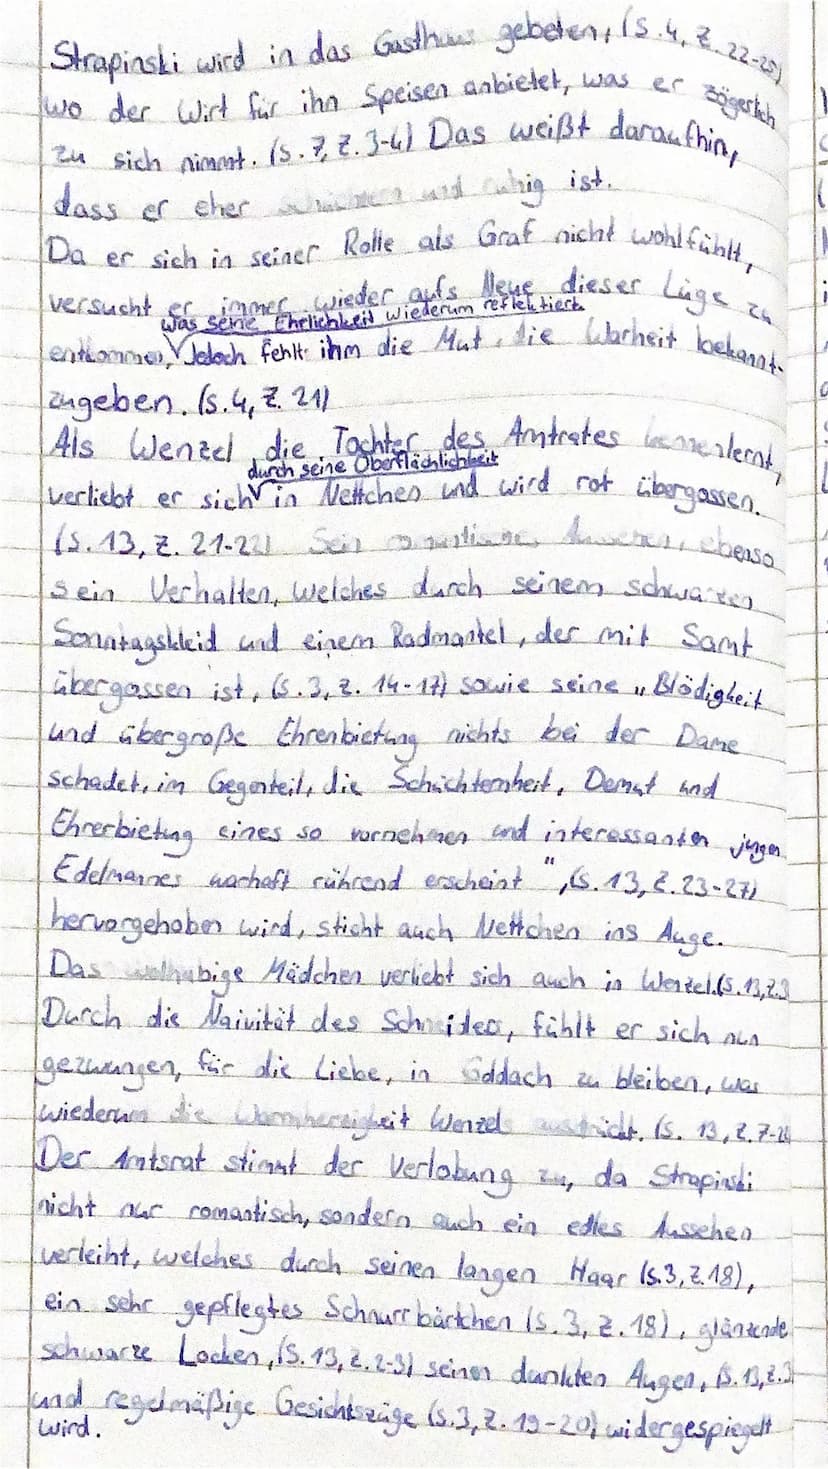 Strapinski wird in das Gasthaus gebeten, (S.4, Z. 22-25)
wo der Wirt für ihn Speisen anbietet, was er zögerlich
zu sich nimmt. (S. 7, Z. 3-4) Das weißt daraufhin,
dass er eher und ruhig ist.
Da er sich in seiner Rolle als Graf nicht wohlfühlt,
versucht er immer wieder aufs Neue dieser Lüge zu
was seine Ehrlichkeit wiederum reflektiert
entkommen, Jedoch fehlt ihm die Mut, die Warheit bekannt-
zugeben. (S.4, Z. 21)
Als Wenzel die Tochter des Amtrates kennenlernt,
durch seine Oberflächlichkeit
verliebt er sich in Nettchen und wird rot übergossen.
(S. 13, Z. 21-22) Sein ebenso
sein Verhalten, welches durch seinem schwarzen
Sonntagskleid und einem Radmantel, der mit Samt
übergossen ist, (S. 3, Z. 14-17) sowie seine „Blödigkeit
und übergroße Ehrenbietung nichts bei der Dame
schadet, im Gegenteil, die Schüchternheit, Demut und
Ehrerbietung eines so vornehmen und interessanten jungen
Edelmannes warhaft rührend erscheint", (S. 13, Z. 23-27)
hervorgehoben wird, sticht auch Nettchen ins Auge.
Das wolhabige Mädchen verliebt sich auch in Wenzel. (S. 13, Z.3
Durch die Naivität des Schneiders, fühlt er sich nun
gezwungen, für die Liebe, in Goddach zu bleiben, was
wiederum die Warmherzigkeit Wenzels ausdrückt. (S. 13, Z. 7-
Der Amtsrat stimmt der Verlobung zu, da Strapinski
nicht nur romantisch, sondern auch ein edles Aussehen
verleiht, welches durch seinen langen Haar (S.3, Z.18),
ein sehr gepflegtes Schnurrbärtchen (S. 3, Z. 18), glänzende
schwarze Locken, (S. 13, Z. 2-3) seinen dunklen Augen, (S. 13, Z.3
und regelmäßige Gesichtszüge (S.3, Z. 19-20) widergespiegelt
wird.